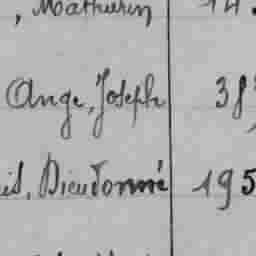 , Mathurin 14
Ange, Joseph 38
is, Dieudonné 195